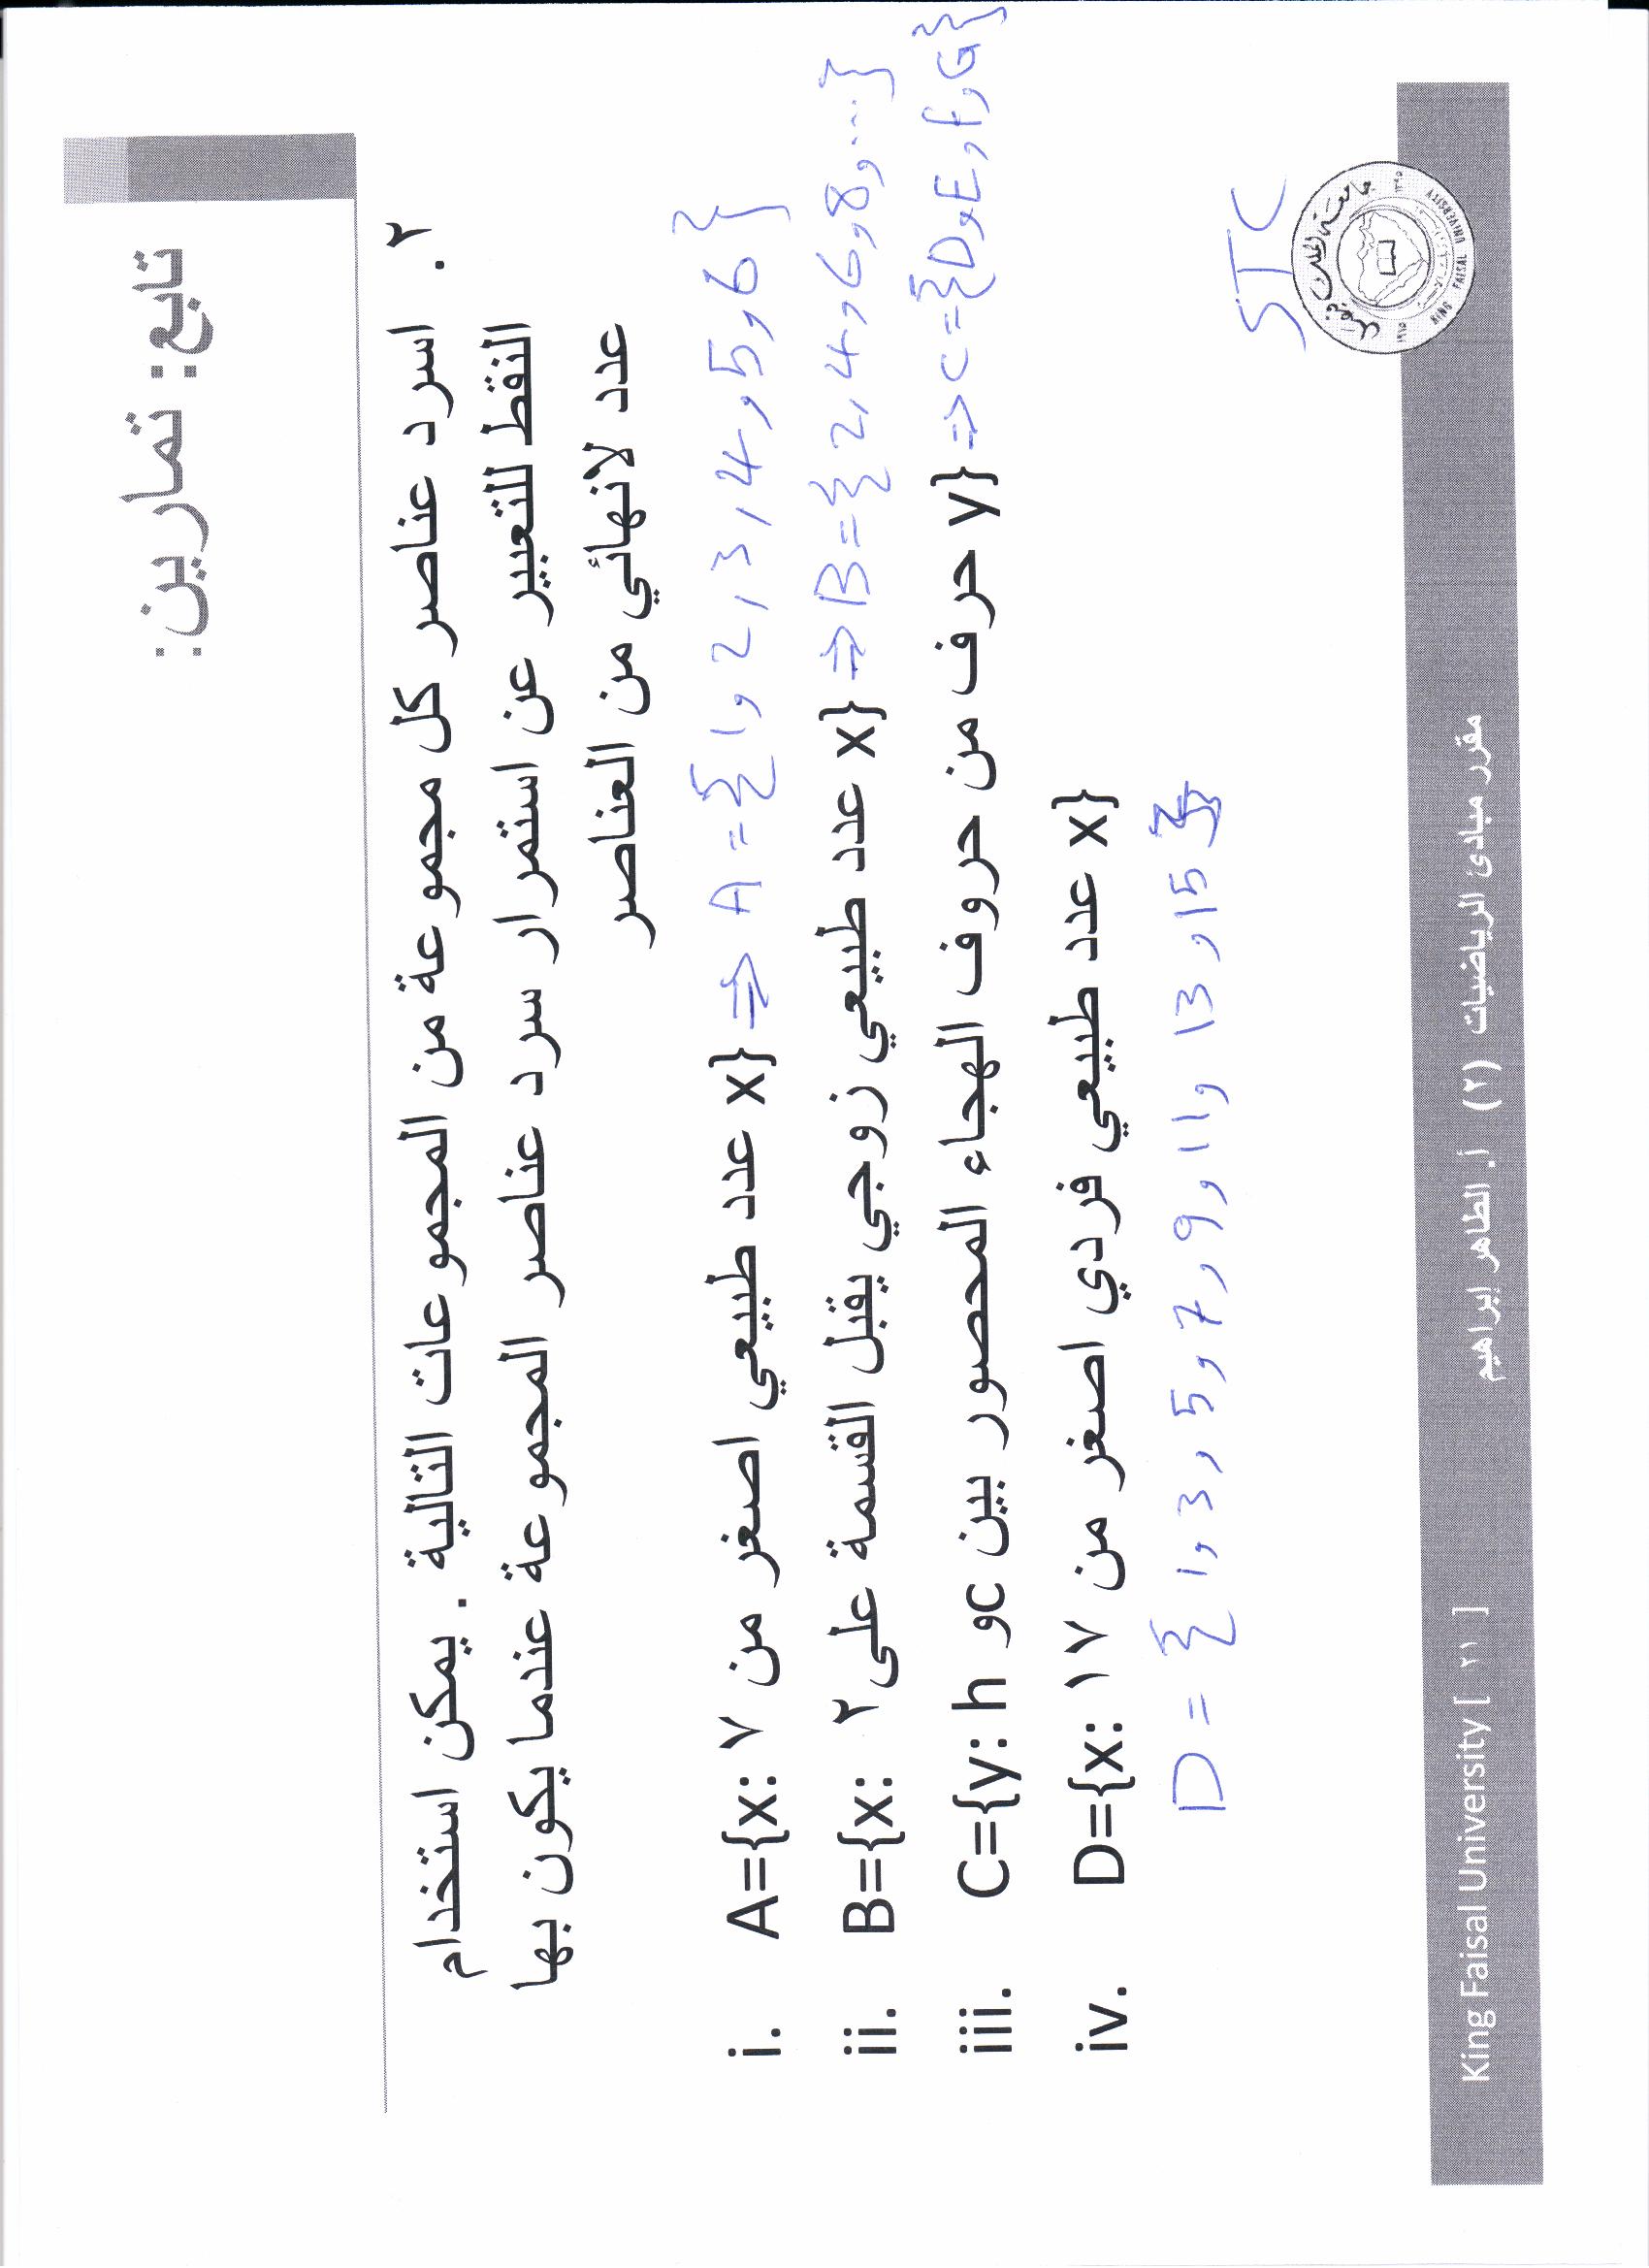 تابع: تمارين:
٢. اسرد عناصر كل مجموعة من المجموعات التالية . يمكن استخدام
النقط للتعبير عن استمرار سرد عناصر المجموعة عندما يكون بها
عدد لانهائي من العناصر
i. A={x: ٧ عدد طبيعي اصغر من x} => A = {1, 2, 3, 4, 5, 6}
ii. B={x: ٢ عدد طبيعي زوجي يقبل القسمة على x} => B = {2, 4, 6, 8, ...}
iii. C={y: h وc حرف من حروف الهجاء المحصور بين y} => C = {D, E, F, G}
iv. D={x: ١٧ عدد طبيعي فردي اصغر من x}
D = {1, 3, 5, 7, 9, 11, 13, 15}
STC
جامعة الملك فيصل
KING FAISAL UNIVERSITY
King Faisal University [ ٢١ ] أ. الطاهر إبراهيم مقرر مبادئ الرياضيات (٢)